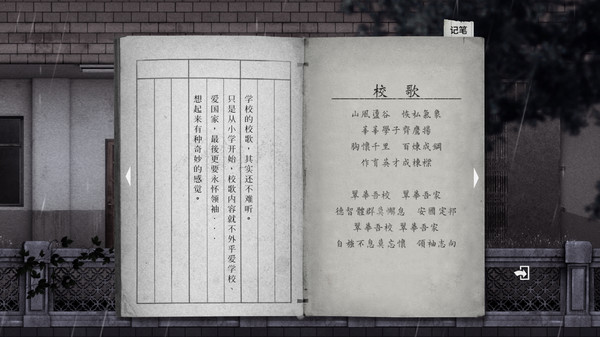 记笔
学校的校歌，其实还不难听。
只是从小学开始，校歌内容就不外乎爱学校、
爱国家，最後更要永怀领袖...
想起来有种奇妙的感觉。
校歌
山風盪谷 氣象
莘莘學子
胸懷千里 百煉成鋼
作育英才成棟樑
翠華吾校 翠華吾家
德智體群莫懈怠 安國定邦
翠華吾校 翠華吾家
不息莫忘懷 領袖志向